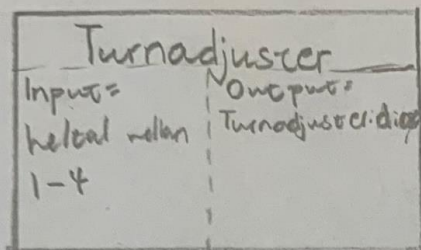 Turnadjuster
Input=
heltal mellan
1-4
Output=
Turnadjuster.diag